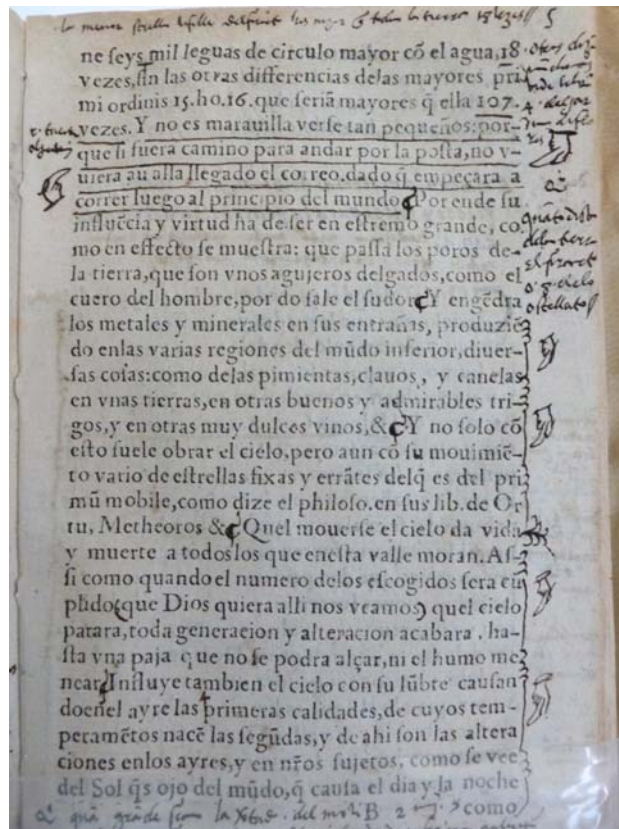 la menor strella
ne seys mil leguas de circulo mayor cõ el agua, 18
vezes, sin las otras differencias delas mayores pri
mi ordinis 15. ho. 16. que seriã mayores q̃ ella 107.
vezes. Y no es marauilla verse tan pequeños: por-
que si fuera camino para andar por la posta, no v-
uiera au alla llegado el correo. dado q̃ empeçara a
correr luego al principio del mundo Por ende su
influẽcia y virtud ha de ser en estremo grande, co
mo en effecto se muestra: que passa los poros de-
la tierra, que son vnos agujeros delgados, como el
cuero del hombre, por do sale el sudor. Y engẽdra
los metales y minerales en sus entrañas, produziẽ
do enlas varias regiones del mũdo inferior, diuer-
sas cosas: como delas pimientas, clauos, y canelas
en vnas tierras, en otras buenos y admirables tri-
gos, y en otras muy dulces vinos, &c. Y no solo cõ
esto suele obrar el cielo, pero aun cõ su mouimiẽ-
to vario de estrellas fixas y errãtes delq̃ es del pri
mũ mobile, como dize el philoso. en sus lib. de Or
tu, Metheoros &c. Quel mouerse el cielo da vida
y muerte a todos los que enesta valle moran. As-
si como quando el numero delos escogidos sera cũ
plido (que Dios quiera alli nos veamos) quel cielo
parara, toda generacion y alteracion acabara. ha-
sta vna paja que no se podra alçar, ni el humo me
near. Influye tambien el cielo con su lũbre causan
doenel ayre las primeras calidades, de cuyos tem-
peramẽtos nacẽ las segũdas, y de ahi son las altera
ciones enlos ayres, y en nr̃os sujetos, como se vee
del Sol q̃ s ojo del mũdo, q̃ causa el dia y la noche
como